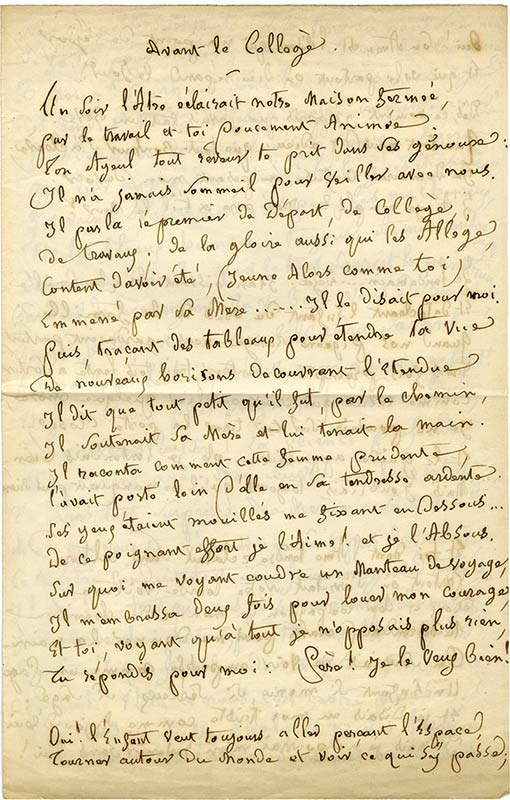 Avant le Collogè.
Un Soir l'Atre éclairait notre Maison fermée,
par le travail et toi Doucement Animée
Ton Ayeul tout reveur te prit dans ses génoux :
Il n'a jamais sommeil pour veiller avec nous.
Il parla le premier de Départ, de Collegè
de travaux, de la gloire aussi qui les Allégè,
Content d'avoir été, (jeune Alors comme toi)
Emmené par Sa Mère...... Il le disait pour moi.
Puis, traçant des tableaux pour étendre ta vue
De nouveaux horisons decouvrant l'étendue
Il dit que tout petit qu'il fut, par le chemin,
Il soutenait Sa Mère et lui tenait la main.
Il raconta comment cette femme prudente,
l'avait porté loin d'elle en sa tendresse ardente.
Ses yeux étaient mouillés me fixant en Dessous...
De ce poignant effort je l'Aime! et je l'Absous.
Sur quoi me voyant coudre un Manteau de voyage,
Il m'embrassa deux fois pour louer mon courage,
Et toi, voyant qu'à tout je n'opposais plus rien,
Tu répondis pour moi : Père! Je le Veux bien!
Oui! l'Enfant veut toujours aller perçant l'Espace,
Tourner autour du Monde et voir ce qui s'y passe;